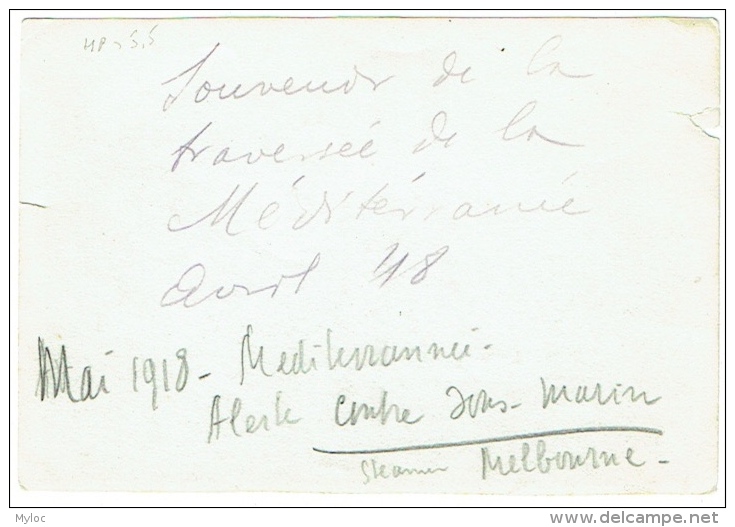 Souvenir de la
traversée de la
Méditérranée
Avril 18
Mai 1918 - Mediterrannée -
Alerte contre sous-marin
steamer Melbourne -
Myloc
delcampe.net